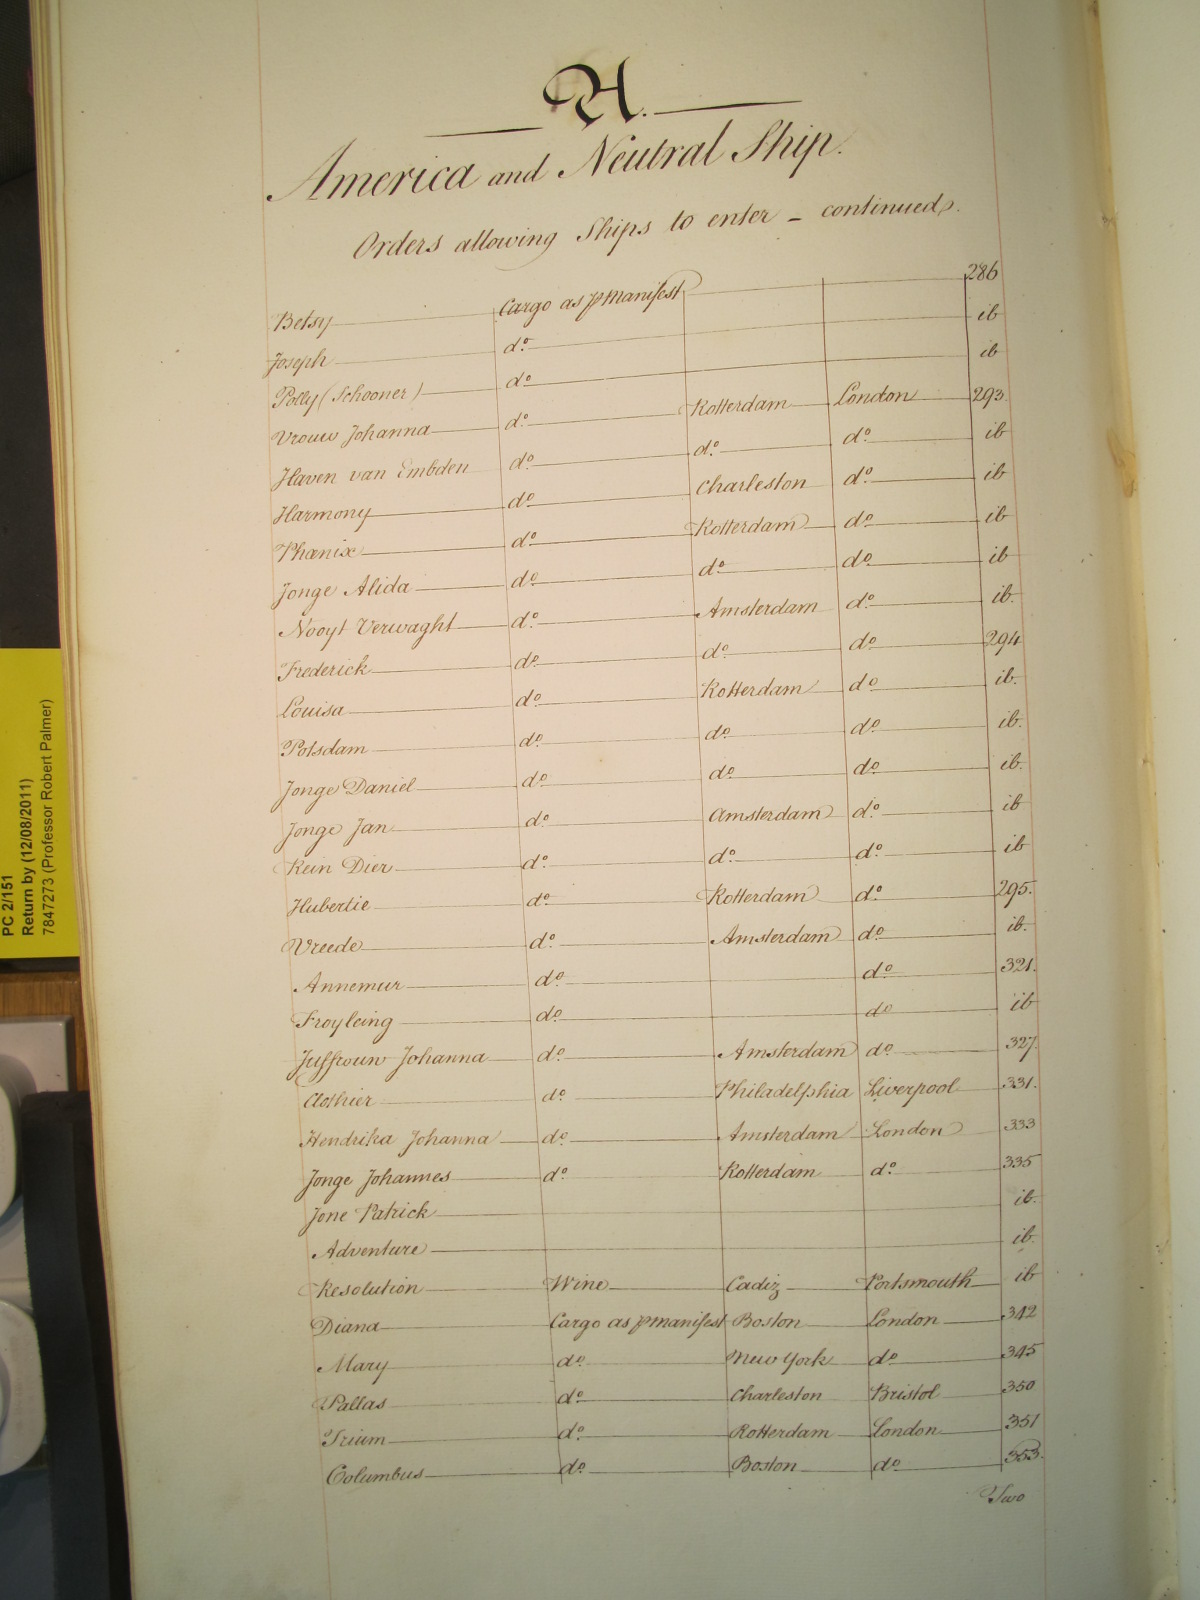 A.
America and Neutral Ship.
Orders allowing Ships to enter - continued.
Betsy Cargo as p manifest 286
Joseph do. ib
Polly (Schooner) do. ib
Vrouw Johanna do. Rotterdam London 293.
Haven van Embden do. do. do. ib
Harmony do. Charleston do. ib
Phœnix do. Rotterdam do. ib
Jonge Alida do. do. do. ib
Nooyt Verwaght do. Amsterdam do. ib.
Frederick do. do. do. 294
Louisa do. Rotterdam do. ib.
Potsdam do. do. do. ib.
Jonge Daniel do. do. do. ib.
Jonge Jan do. Amsterdam do. ib
Rein Dier do. do. do. ib
Hubertie do. Rotterdam do. 295.
Vreede do. Amsterdam do. ib.
Annemur do. do. 321.
Froyleing do. do. ib
Juffrouw Johanna do. Amsterdam do. 327.
Clothier do. Philadelphia Liverpool 331.
Hendrika Johanna do. Amsterdam London 333
Jonge Johannes do. Rotterdam do. 335
Jone Patrick ib.
Adventure ib.
Resolution Wine Cadiz Portsmouth ib
Diana Cargo as p manifest Boston London 342
Mary do. New York do. 345
Pallas do. Charleston Bristol 350
Trium do. Rotterdam London 351
Columbus do. Boston do. 353.
Two
PC 2/151
Return by (12/08/2011)
7847273 (Professor Robert Palmer)